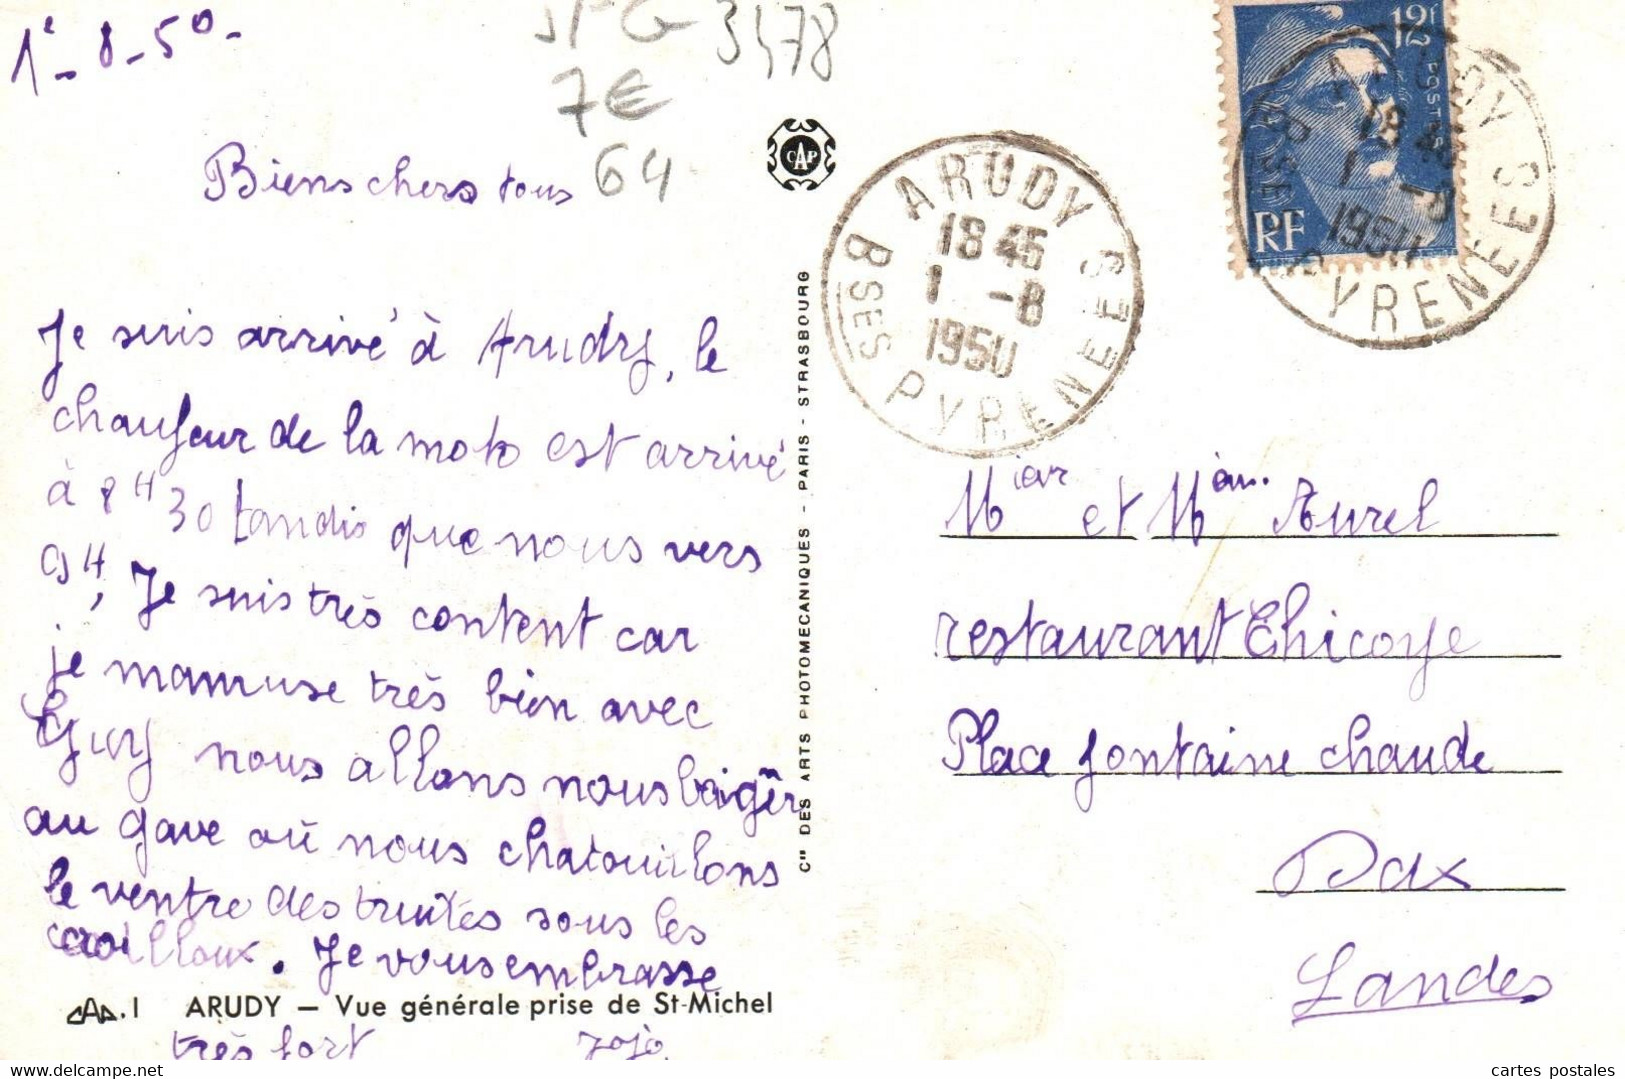 1e - 8 - 50 -
3478
7€
64
Biens chers tous
Je suis arrivé à Arudy, le
chaufeur de la moto est arrivé
à 8H30 tandis que nous vers
9H, Je suis très content car
je mamuse très bien avec
Guy nous allons nous baigër
au gave où nous chatouillons
le ventre des truites sous les
cailloux. Je vous embrasse
très fort Jojo
CAP.1 ARUDY — Vue générale prise de St-Michel
CAP
Cie DES ARTS PHOTOMECANIQUES - PARIS - STRASBOURG
ARUDY
18 45
1 -8
1950
BSES PYRENEES
12F
POSTES
RF
ARUDY
18 45
1 -8
1950
BSES PYRENEES
Mier et Mèm. Aurel
restaurant Chicoye
Place fontaine chaude
Dax
Landes
www.delcampe.net
cartes postales